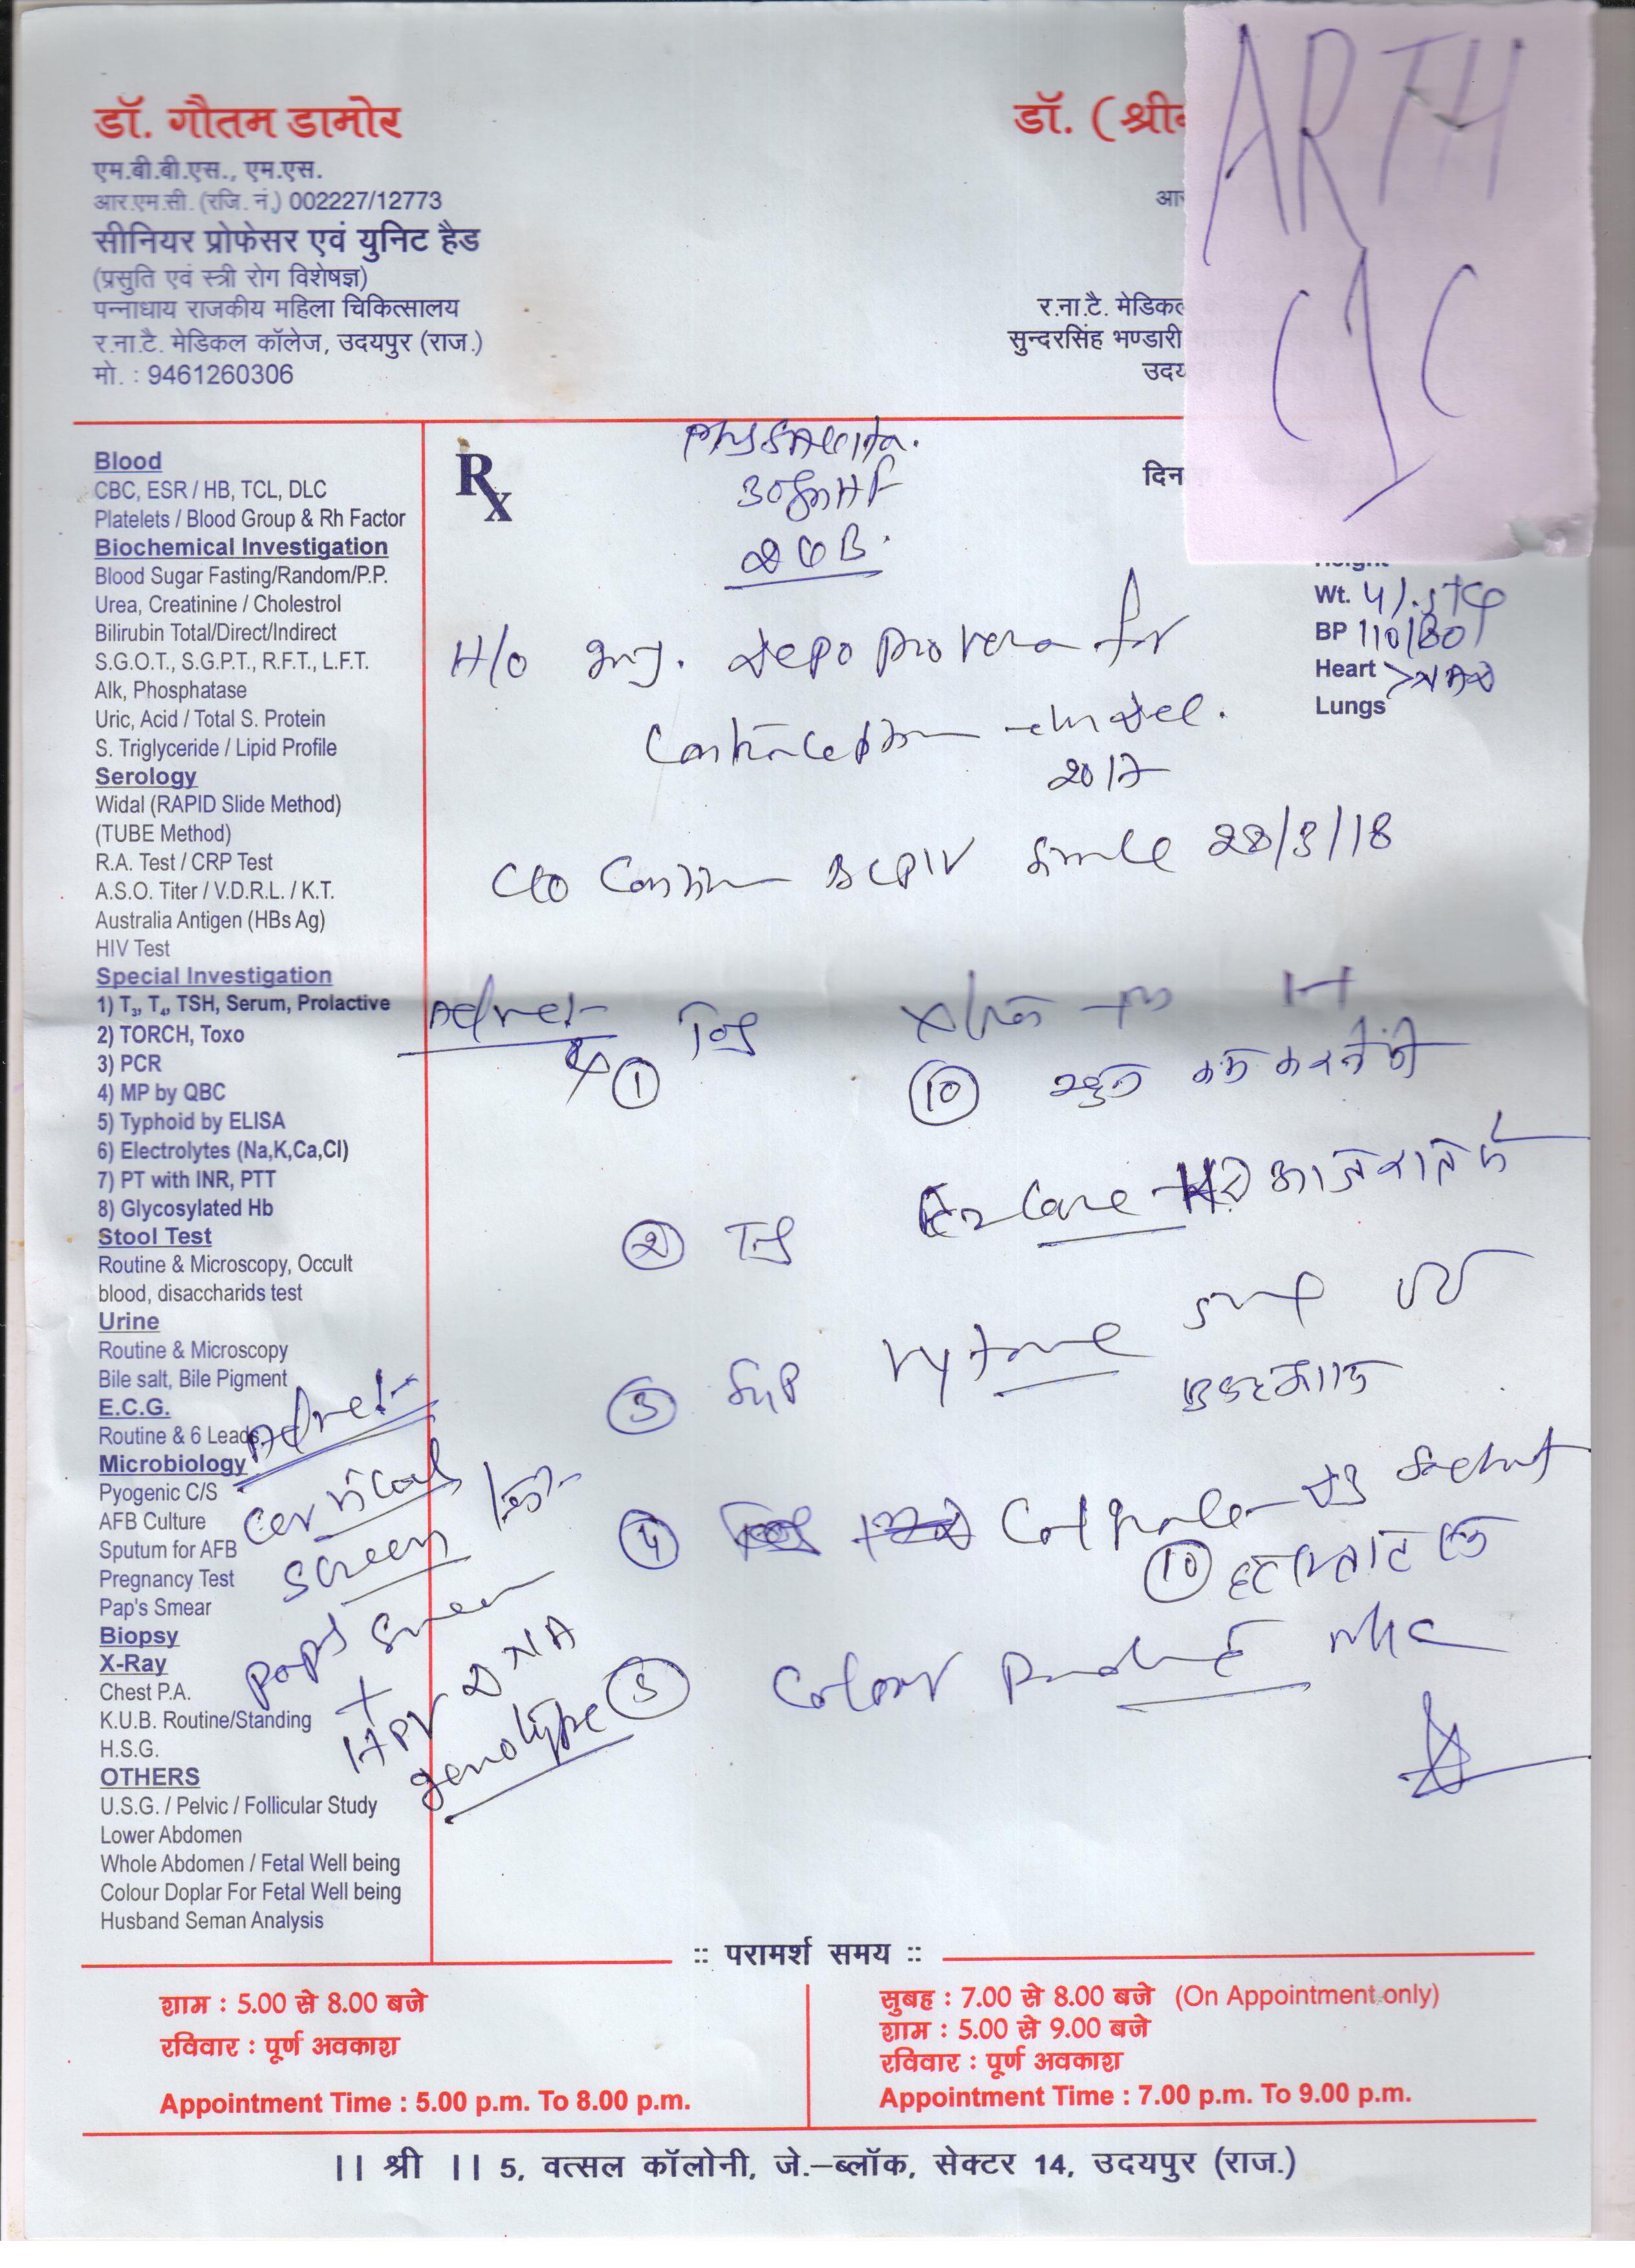 डॉ. गौतम डामोर
एम.बी.बी.एस., एम.एस.
आर.एम.सी. (रजि. नं.) 002227/12773
सीनियर प्रोफेसर एवं युनिट हैड
(प्रसुति एवं स्त्री रोग विशेषज्ञ)
पन्नाधाय राजकीय महिला चिकित्सालय
र.ना.टै. मेडिकल कॉलेज, उदयपुर (राज.)
मो. : 9461260306
डॉ. (श्री
आर
र.ना.टै. मेडिकल
सुन्दरसिंह भण्डारी
उदय
ARTH
C1C
Blood
CBC, ESR / HB, TCL, DLC
Platelets / Blood Group & Rh Factor
Biochemical Investigation
Blood Sugar Fasting/Random/P.P.
Urea, Creatinine / Cholestrol
Bilirubin Total/Direct/Indirect
S.G.O.T., S.G.P.T., R.F.T., L.F.T.
Alk, Phosphatase
Uric, Acid / Total S. Protein
S. Triglyceride / Lipid Profile
Serology
Widal (RAPID Slide Method)
(TUBE Method)
R.A. Test / CRP Test
A.S.O. Titer / V.D.R.L. / K.T.
Australia Antigen (HBs Ag)
HIV Test
Special Investigation
1) T3, T4, TSH, Serum, Prolactive
2) TORCH, Toxo
3) PCR
4) MP by QBC
5) Typhoid by ELISA
6) Electrolytes (Na,K,Ca,Cl)
7) PT with INR, PTT
8) Glycosylated Hb
Stool Test
Routine & Microscopy, Occult
blood, disaccharids test
Urine
Routine & Microscopy
Bile salt, Bile Pigment
E.C.G.
Routine & 6 Leads
Microbiology
Pyogenic C/S
AFB Culture
Sputum for AFB
Pregnancy Test
Pap's Smear
Biopsy
X-Ray
Chest P.A.
K.U.B. Routine/Standing
H.S.G.
OTHERS
U.S.G. / Pelvic / Follicular Study
Lower Abdomen
Whole Abdomen / Fetal Well being
Colour Doplar For Fetal Well being
Husband Seman Analysis
Rx
दिन
Height
Wt.
BP 110/80
Heart > NAD
Lungs
H/o inj. Depo provera for
Contraception in Dec.
2017
C/o Contin BLPIV since 28/3/18
Advice:-
① Tab H
⑩
② Tab
③ Sup
④
⑩
⑤ Colour
Advice:-
Cervical
screen
paps smear
+
HPV DNA
genotype
:: परामर्श समय ::
शाम : 5.00 से 8.00 बजे
रविवार : पूर्ण अवकाश
Appointment Time : 5.00 p.m. To 8.00 p.m.
सुबह : 7.00 से 8.00 बजे (On Appointment only)
शाम : 5.00 से 9.00 बजे
रविवार : पूर्ण अवकाश
Appointment Time : 7.00 p.m. To 9.00 p.m.
|| श्री || 5, वत्सल कॉलोनी, जे.-ब्लॉक, सेक्टर 14, उदयपुर (राज.)